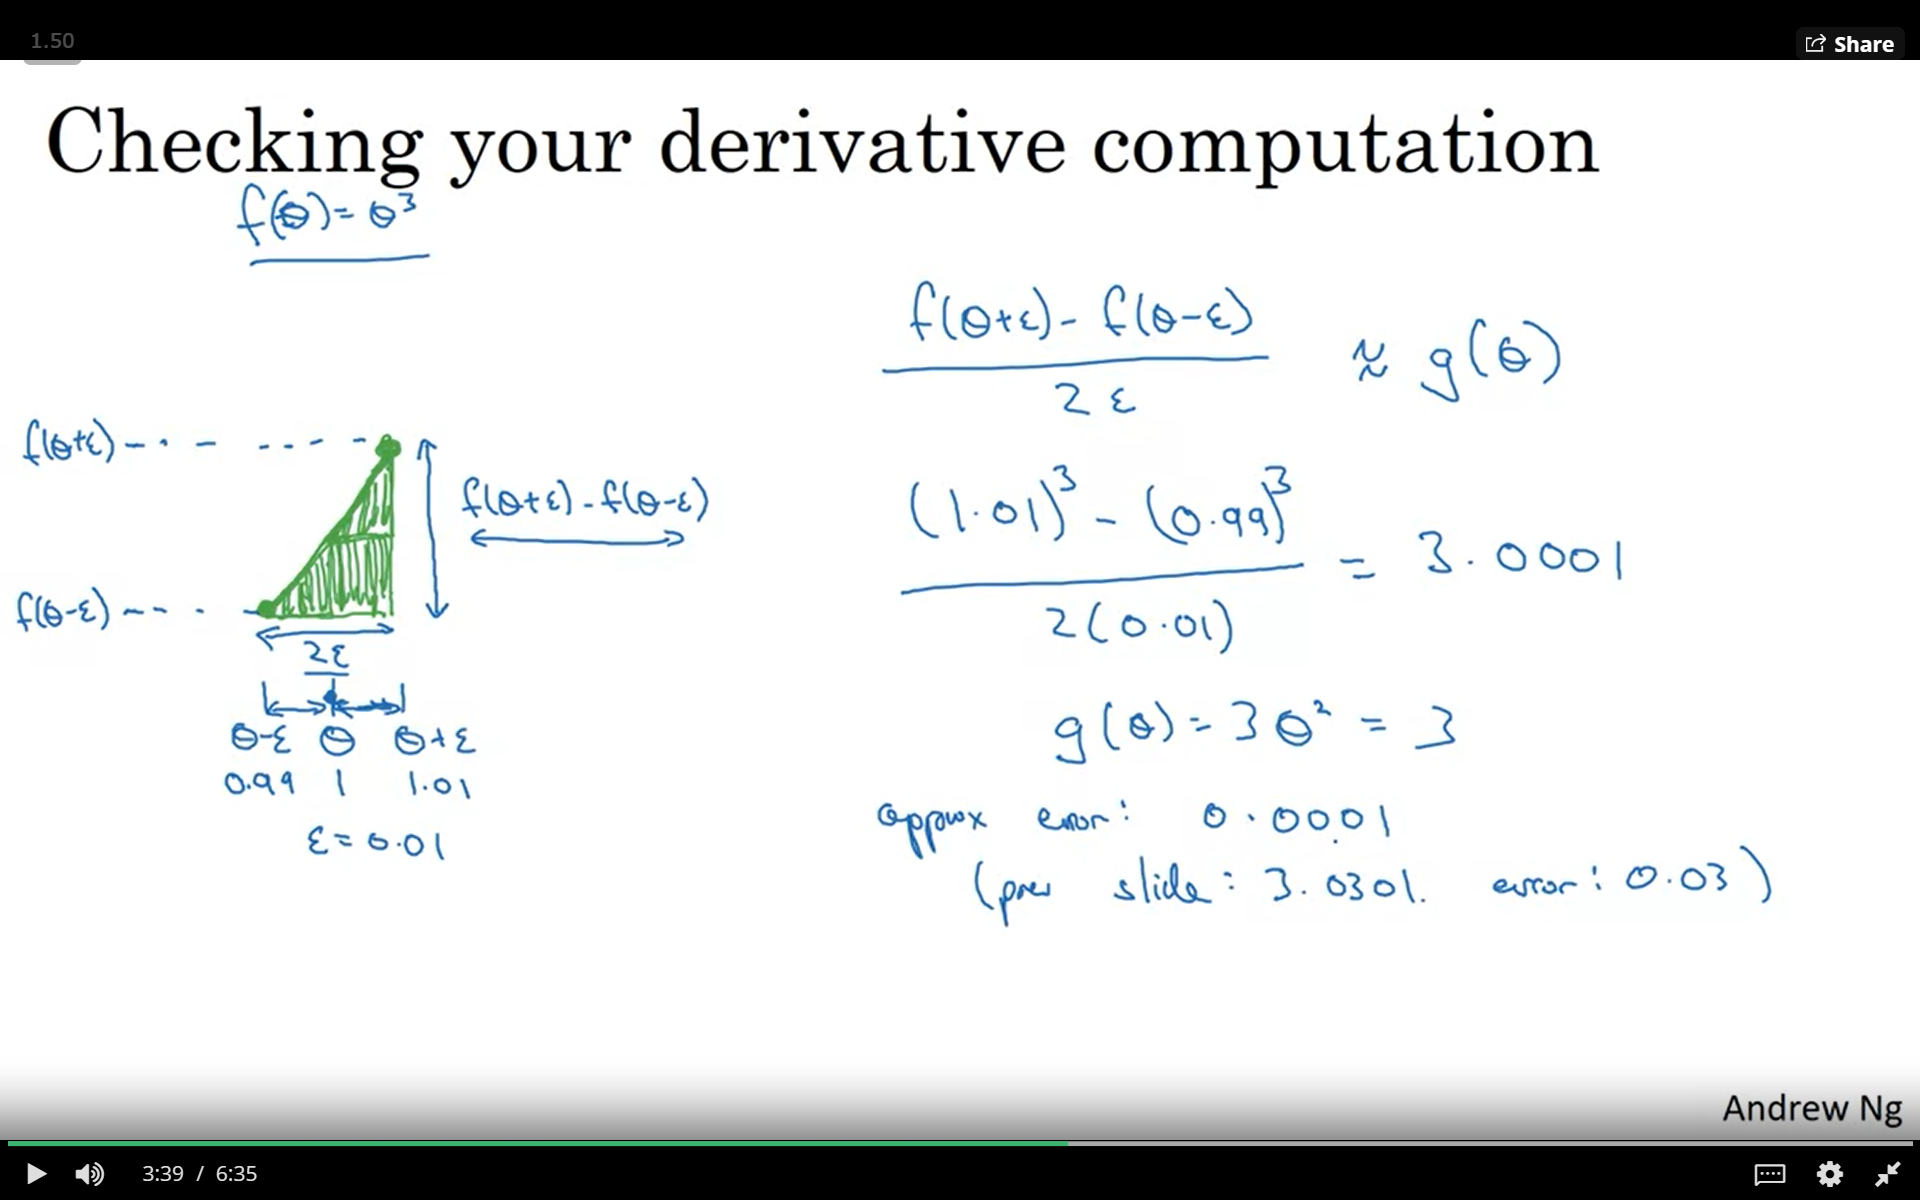 1.50
Share
Checking your derivative computation
f(θ) = θ³
f(θ+ε) - f(θ-ε)
2ε
≈ g(θ)
f(θ+ε)
f(θ+ε) - f(θ-ε)
(1.01)³ - (0.99)³
2(0.01)
= 3.0001
f(θ-ε)
2ε
θ-ε θ θ+ε
0.99 1 1.01
ε = 0.01
g(θ) = 3θ² = 3
approx error: 0.0001
(prev slide: 3.0301. error: 0.03)
Andrew Ng
3:39 / 6:35